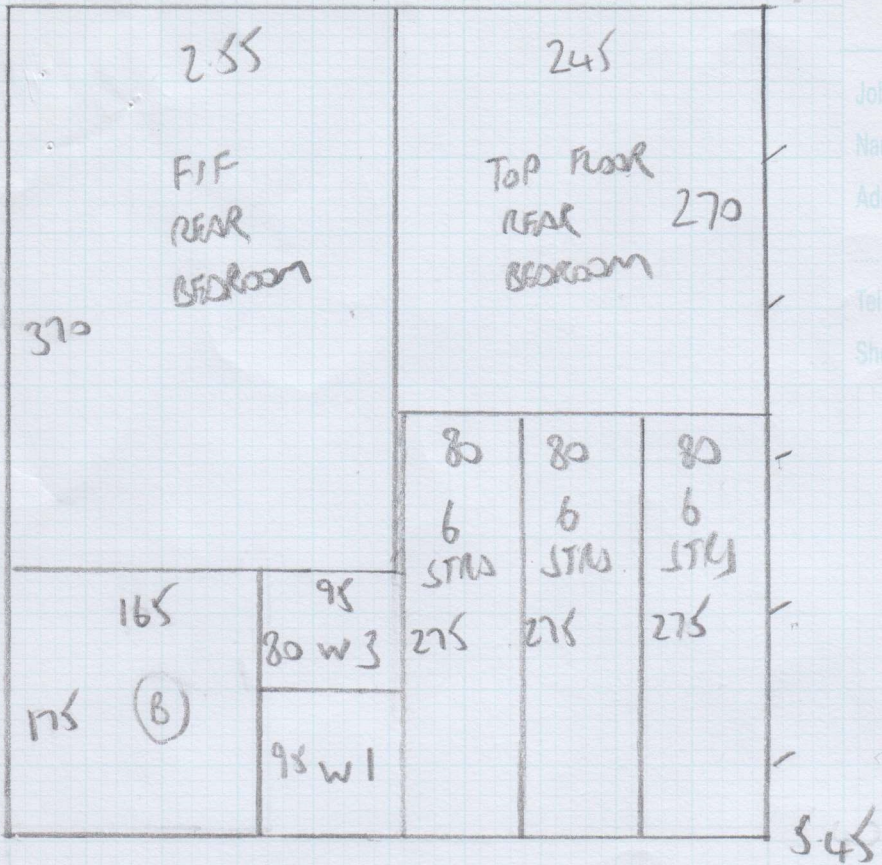 2.55
245
F/F
REAR
BEDROOM
370
TOP FLOOR
REAR
BEDROOM
270
80
6
STRS
275
80
6
STRS
275
80
6
STRS
275
165
175
B
95
80 W3
95 W1
5.45
Tel